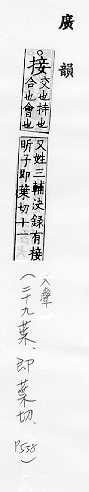 廣韻
接
交也持也
合也會也
又姓三輔決録有接
昕子即葉切十一
入聲
(二十九葉、即葉切、P538)